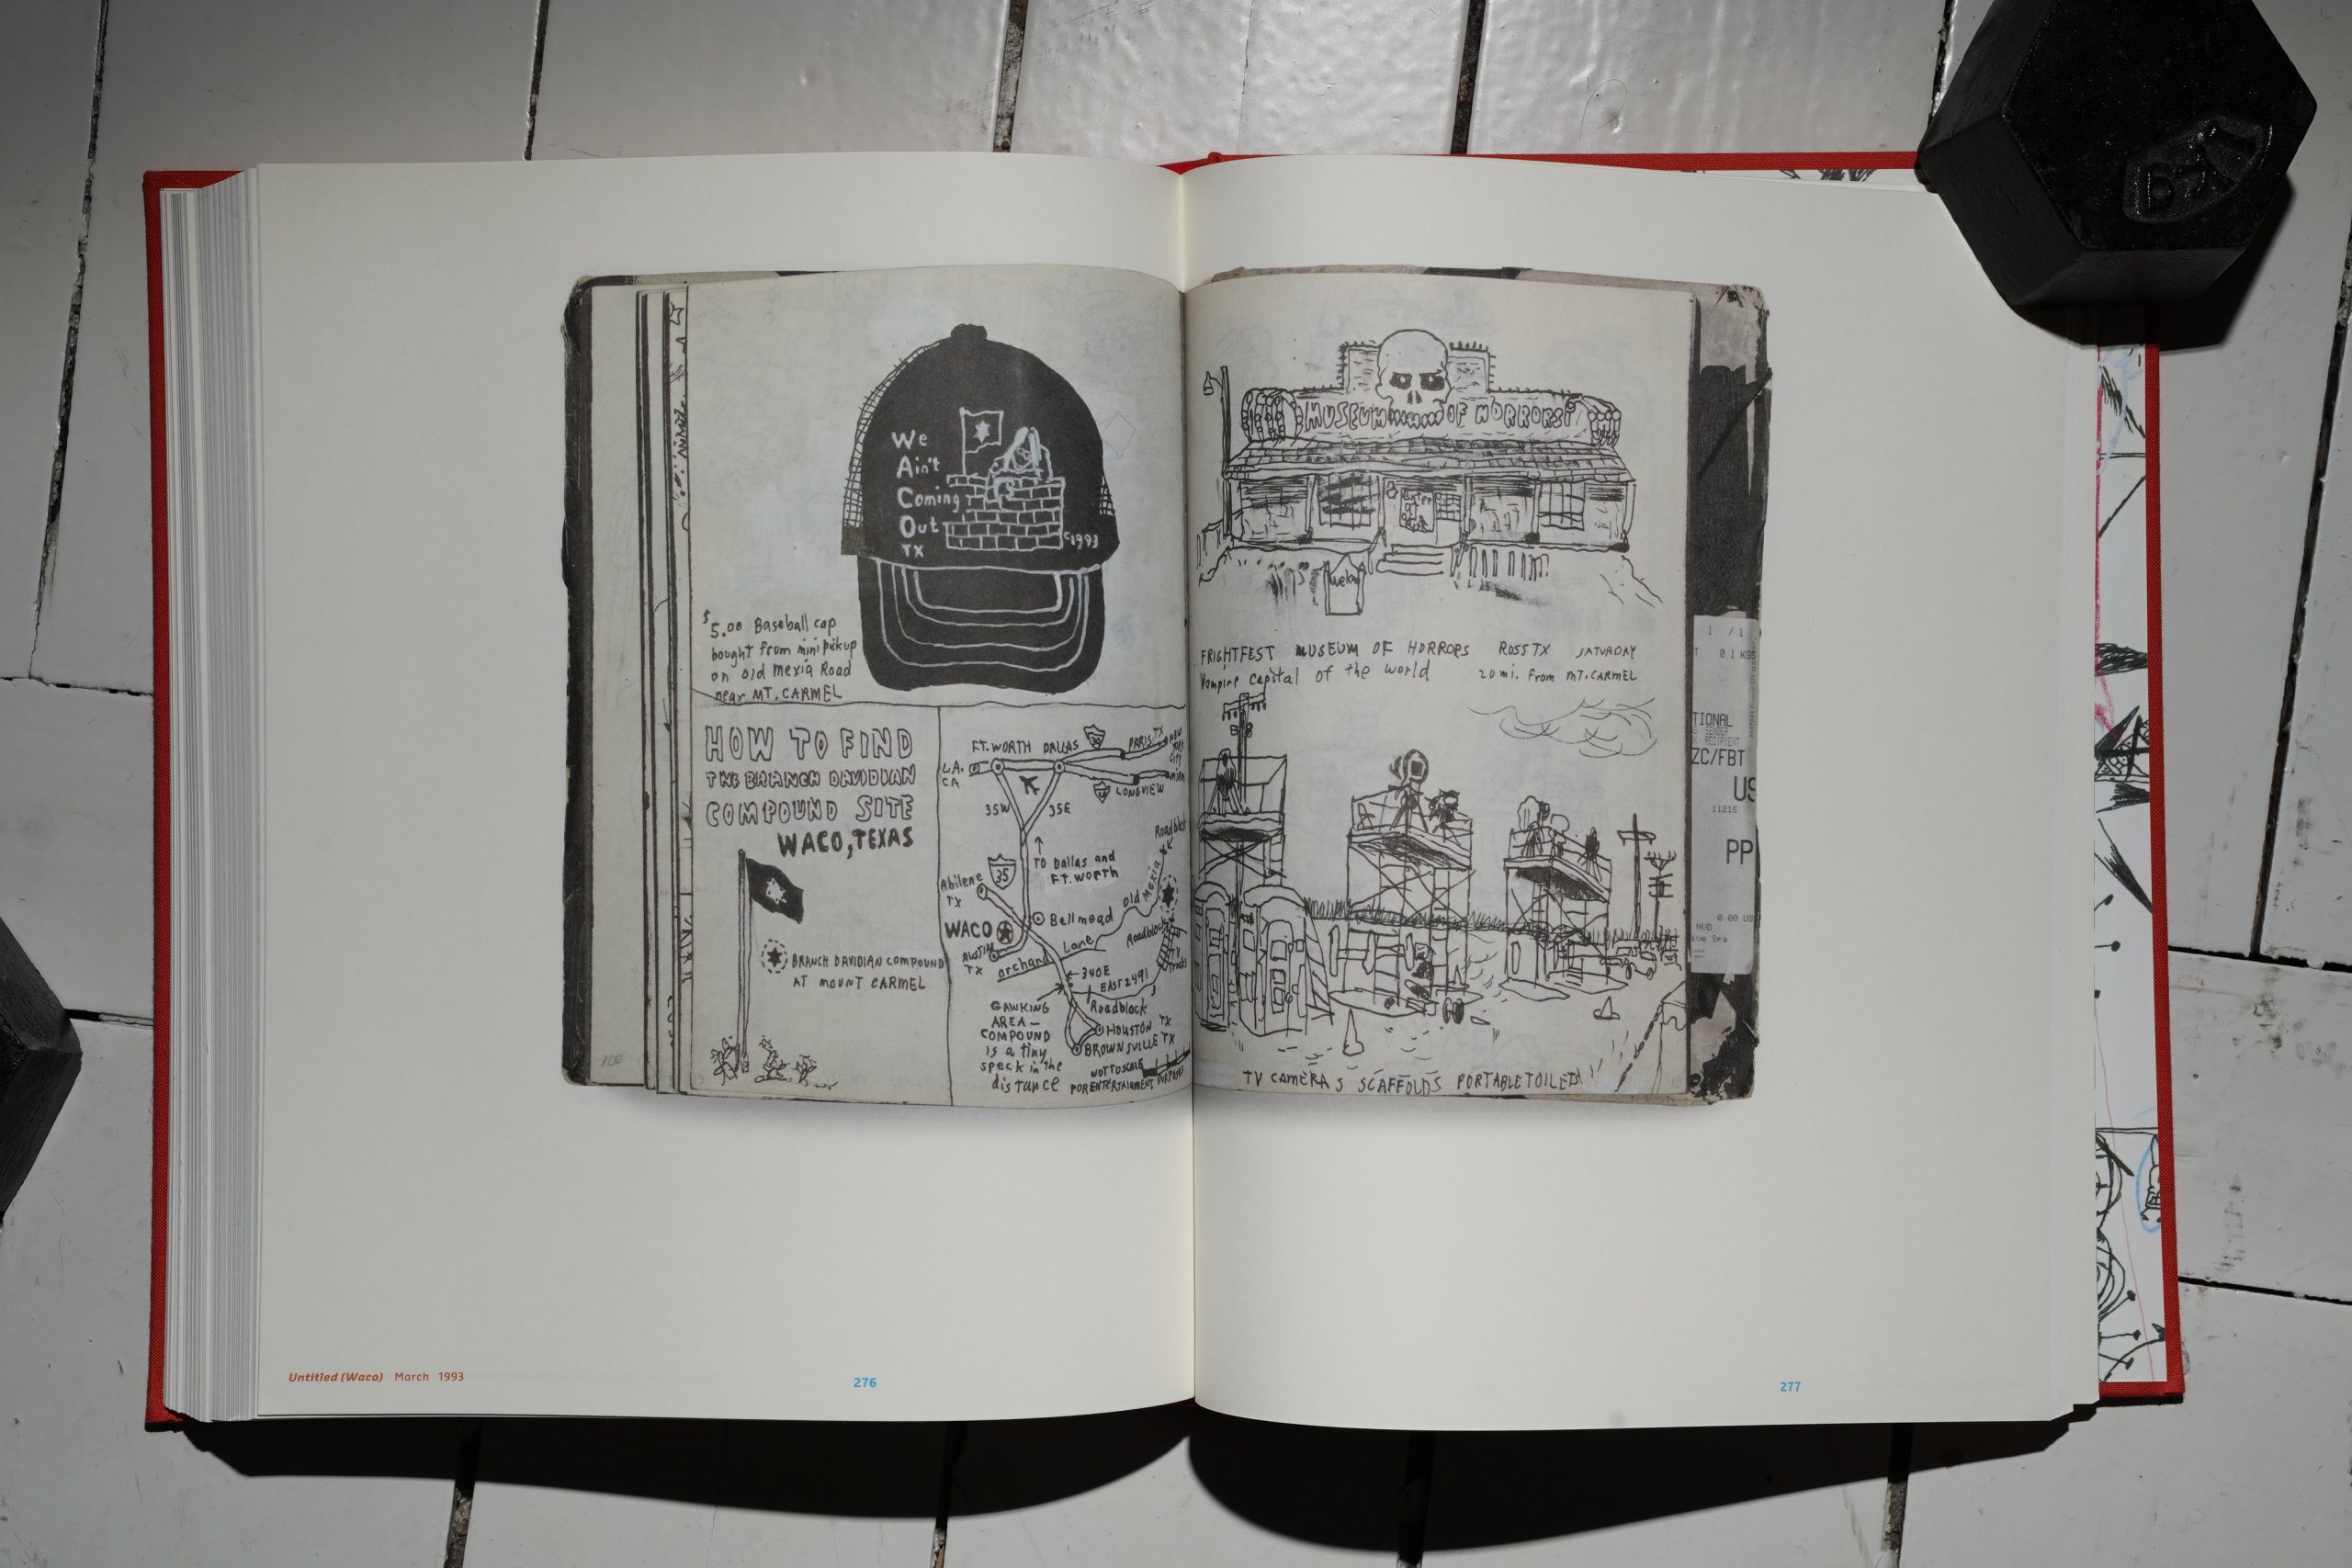 We
Ain't
Coming
Out
TX
©1993
$5.00 Baseball cap
bought from mini pickup
on old Mexia Road
near MT. CARMEL
HOW TO FIND
THE BRANCH DAVIDIAN
COMPOUND SITE
WACO, TEXAS
BRANCH DAVIDIAN COMPOUND
AT MOUNT CARMEL
FT. WORTH DALLAS 30 PARIS TX
L.A.
CA
LONGVIEW
35W 35E
Roadblock
TO Dallas and
FT. WORTH
35
Abilene
TX
Old Mexia
Bellmead
WACO
Roadblock
Lane
AUSTIN
TX
Orchard
TV
Trucks
←340E
EAST 2491
GAWKING
AREA–
COMPOUND
is a tiny
speck in the
distance
Roadblock
HOUSTON TX
BROWNSVILLE TX
NOT TO SCALE
FOR ENTERTAINMENT PURPOSES
MUSEUM OF HORRORS!
FRIGHTFEST MUSEUM OF HORRORS ROSS TX SATURDAY
Vampire Capital of the world 20 mi. from MT. CARMEL
TV CAMERAS SCAFFOLDS PORTABLE TOILETS
1 / 1
0.1 KGS
TIONAL
SENDER
RECIPIENT
ZC/FBT
US
11215
PP
0.00 US
NVD
ive Spa
100
Untitled (Waco) March 1993
276
277